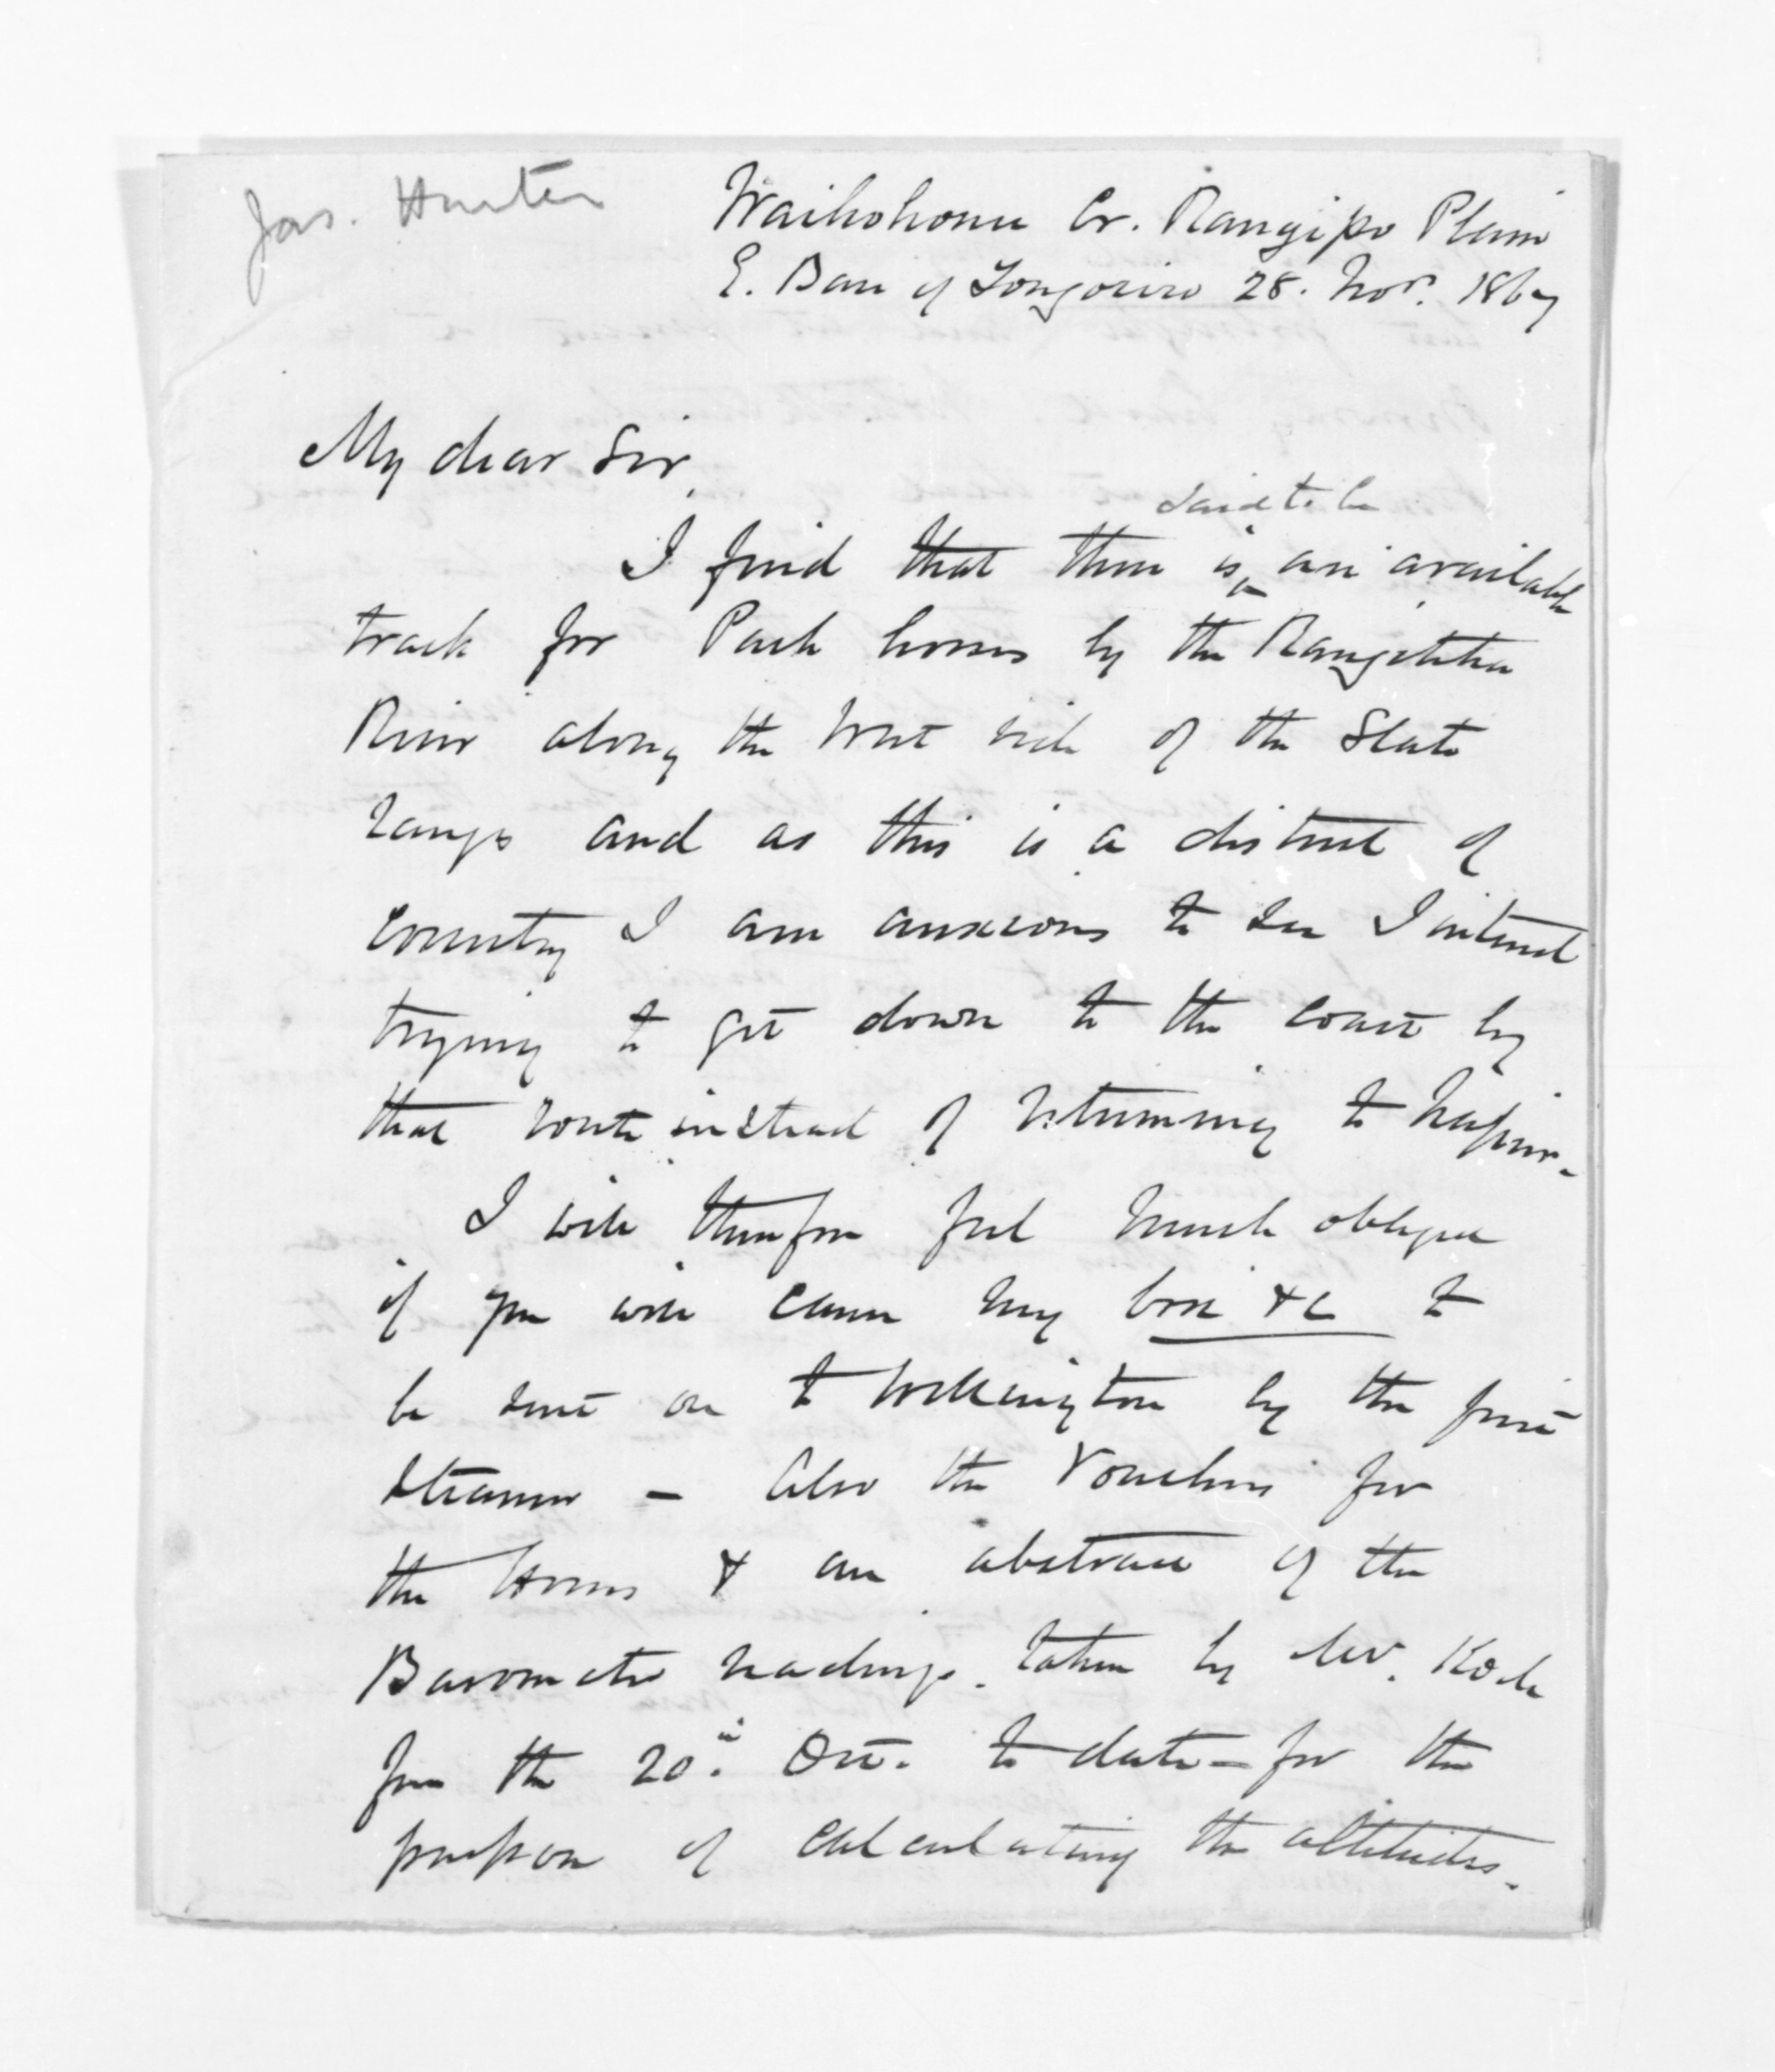 Jas. Hunter
Waihohonu Cr. Rangipo Plain
E. Base of Tongoriro 28. Nov. 1867
My dear Sir,
said to be
I find that there is an available
track for Pack horses by the Rangitikei
River along the West side of the Slate
range and as this is a district of
Country I am anxious to see I intend
trying to get down to the coast by
that route instead of returning to Napier.
I will therefore feel much obliged
if you will cause my box &c to
be sent on to Wellington by the first
Steamer – Also the Vouchers for
the Horses & an abstract of the
Barometer readings taken by Mr. Koch
from the 20th Oct. to date – for the
purpose of calculating the altitudes.